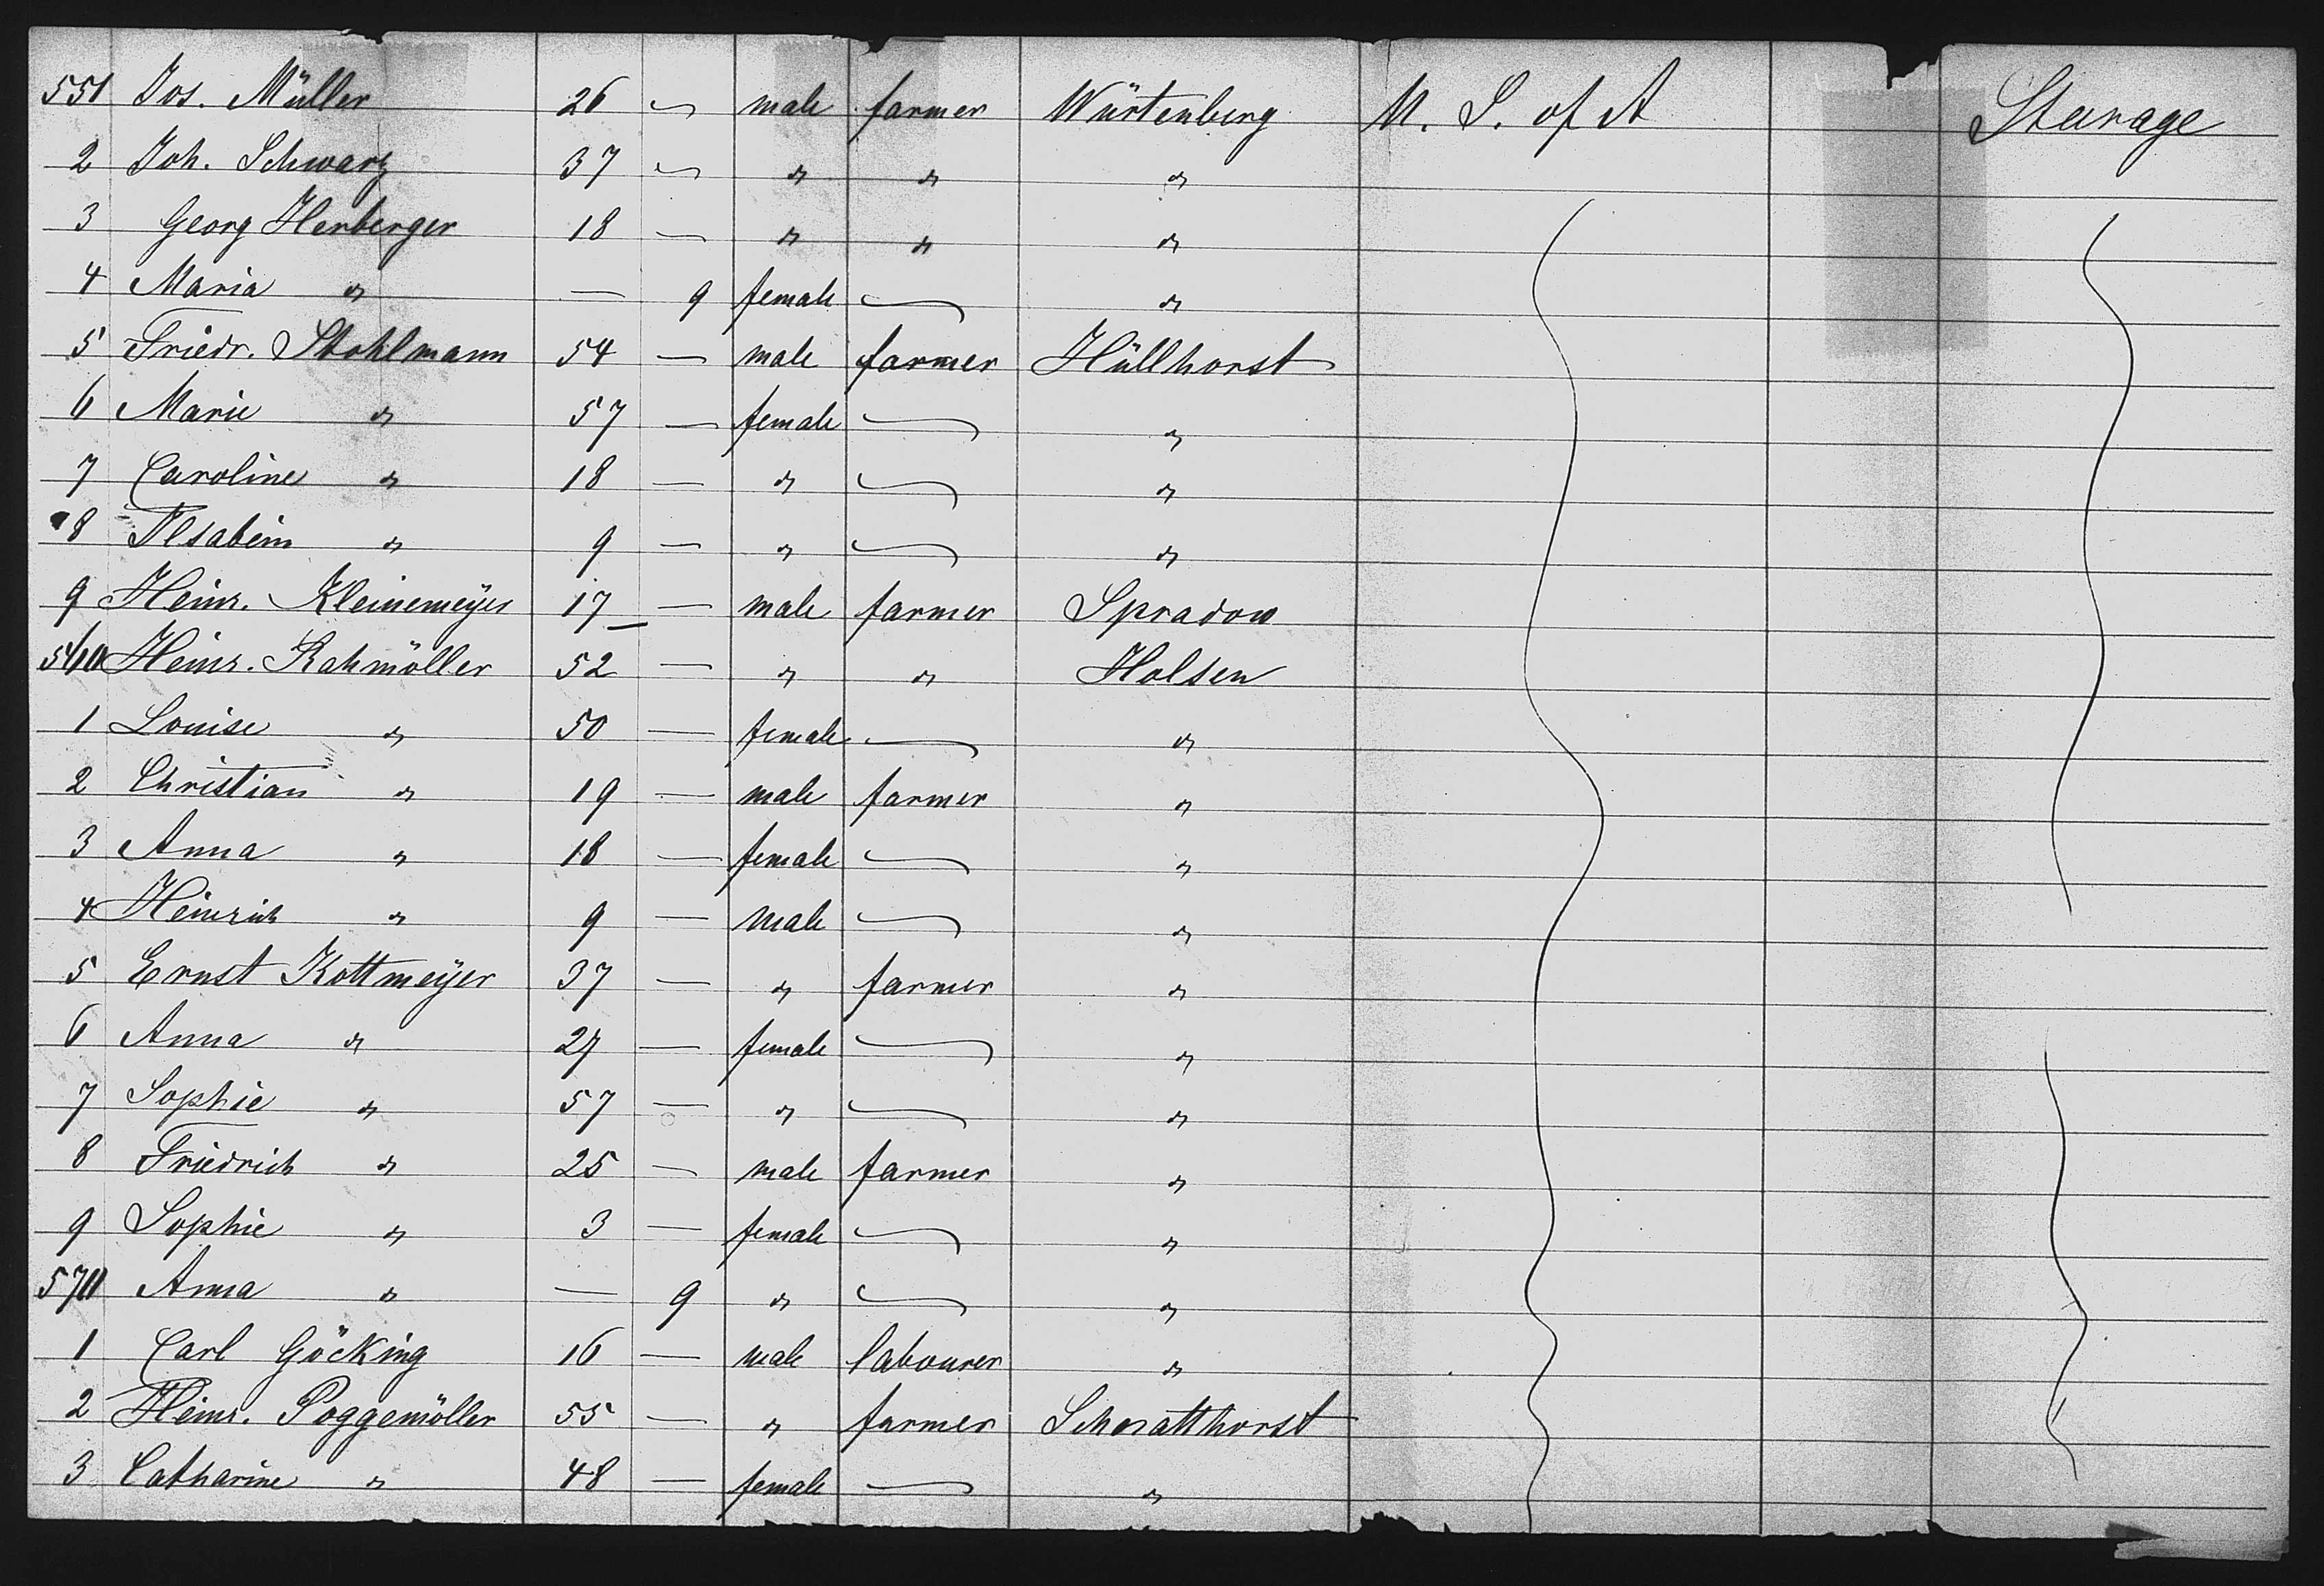 551 Jos. Müller 26 — male farmer Würtenberg U. S. of A Steerage
2 Joh. Schwartz 37 — " " "
3 Georg Herberger 18 — " " "
4 Maria " — 9 female — "
5 Friedr. Stohlmann 54 — male farmer Hüllhorst
6 Marie " 57 — female — "
7 Caroline " 18 — " — "
8 Ilsabein " 9 — " — "
9 Heinr. Kleinemeÿer 17 — male farmer Spradow
560 Heinr. Rahmöller 52 — " " Holsen
1 Louise " 50 — female — "
2 Christian " 19 — male farmer "
3 Anna " 18 — female — "
4 Heinrich " 9 — male — "
5 Ernst Kottmeÿer 37 — " farmer "
6 Anna " 27 — female — "
7 Sophie " 57 — " — "
8 Friedrich " 25 — male farmer "
9 Sophie " 3 — female — "
570 Anna " — 9 " — "
1 Carl Göcking 16 — male labourer "
2 Heinr. Poggemöller 55 — " farmer Schnatthorst
3 Catharine " 48 — female — "